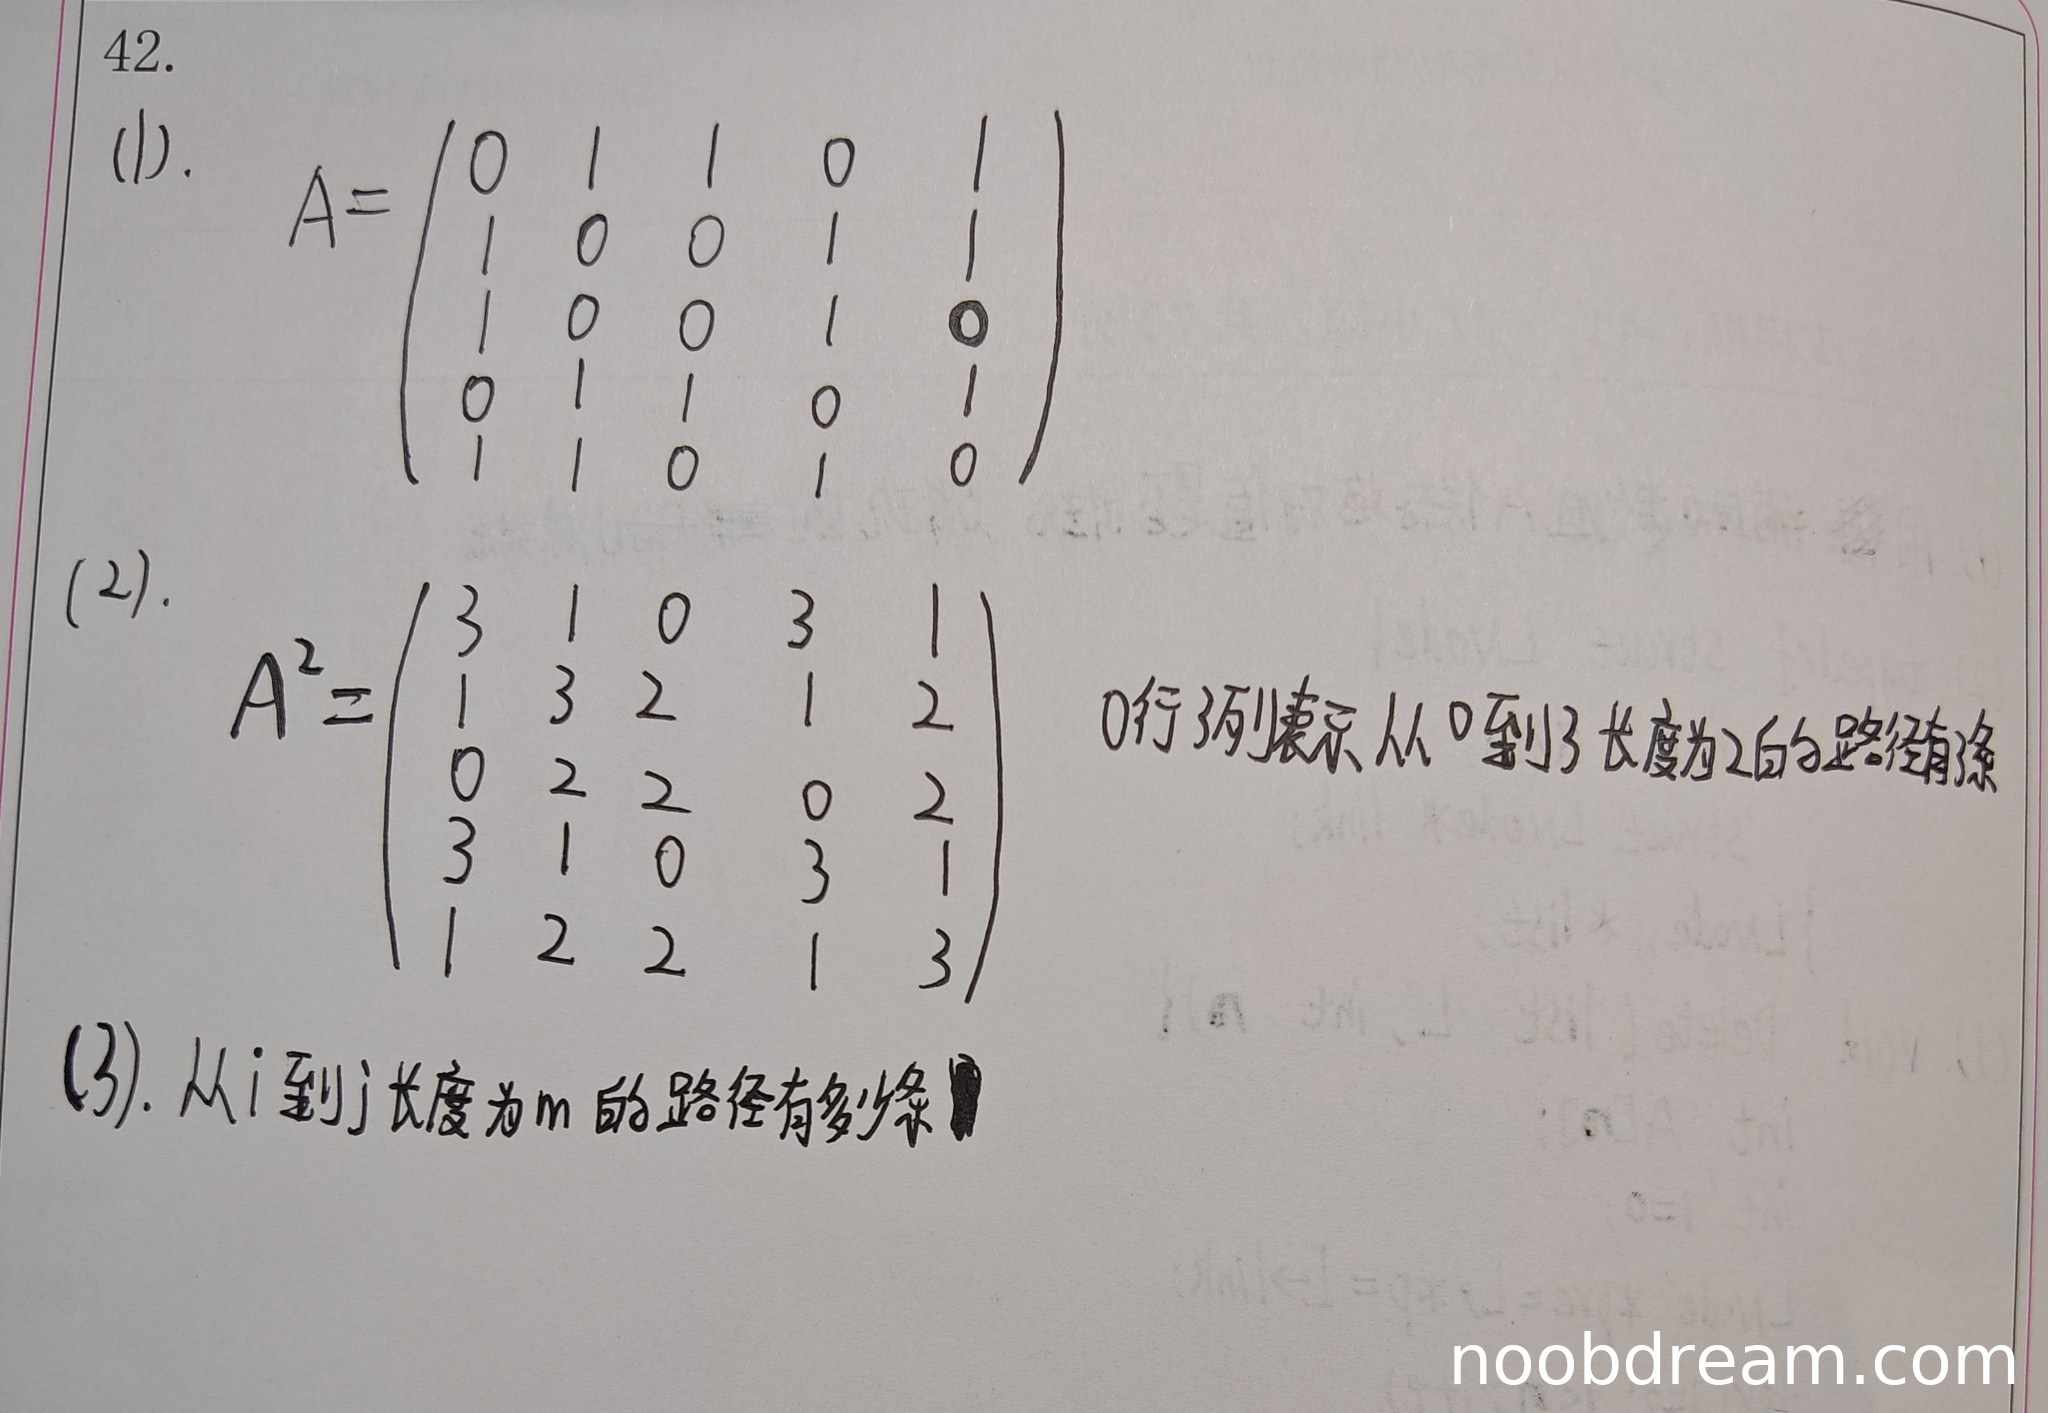 42.
(1).
A=
0 1 1 0 1
1 0 0 1 1
1 0 0 1 0
0 1 1 0 1
1 1 0 1 0
(2).
A²=
3 1 0 3 1
1 3 2 1 2
0 2 2 0 2
3 1 0 3 1
1 2 2 1 3
0行3列表示从0到3长度为2的路径有3条
(3). 从i到j长度为m的路径有多少条
noobdream.com